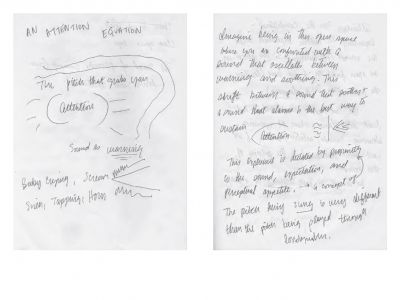 AN ATTENTION EQUATION
The pitch that grabs your
attention
Sound as warning
Baby crying, Scream
Siren, Tapping, Horn
Imagine being in this open space
where you are confronted with a
sound that oscillates between
warning and soothing. This
shift between a sound that soothes &
a sound that alarms is the best way to
sustain
Attention
This experience is decided by proximity
to the sound, expectation, and
perceptual appetite. → a concept of
The pitch being sung is very different
than the pitch being played through
loudspeaker.